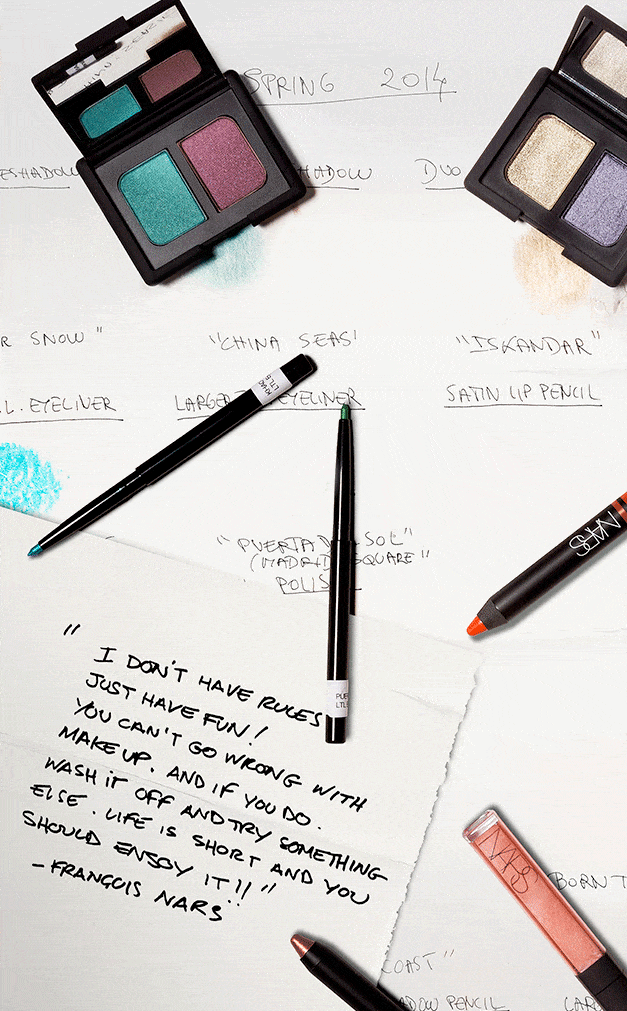 SPRING 2014
ESHADOW
SHADOW
DUO
R SNOW"
"CHINA SEAS'
"ISKANDAR"
L. EYELINER
LARGER
EYELINER
SATIN LIP PENCIL
KHAO
LTLE
"PUERTA D SOL"
(MADRID SQUARE"
POLIS
NARS
PUE
LTLE
" I DON'T HAVE RULES
JUST HAVE FUN!
YOU CAN'T GO WRONG WITH
MAKE UP. AND IF YOU DO.
WASH IT OFF AND TRY SOMETHING
ELSE. LIFE IS SHORT AND YOU
SHOULD ENJOY IT!!"
- FRANÇOIS NARS
NARS
BORN T
COAST"
ADOW PENCIL
LAR